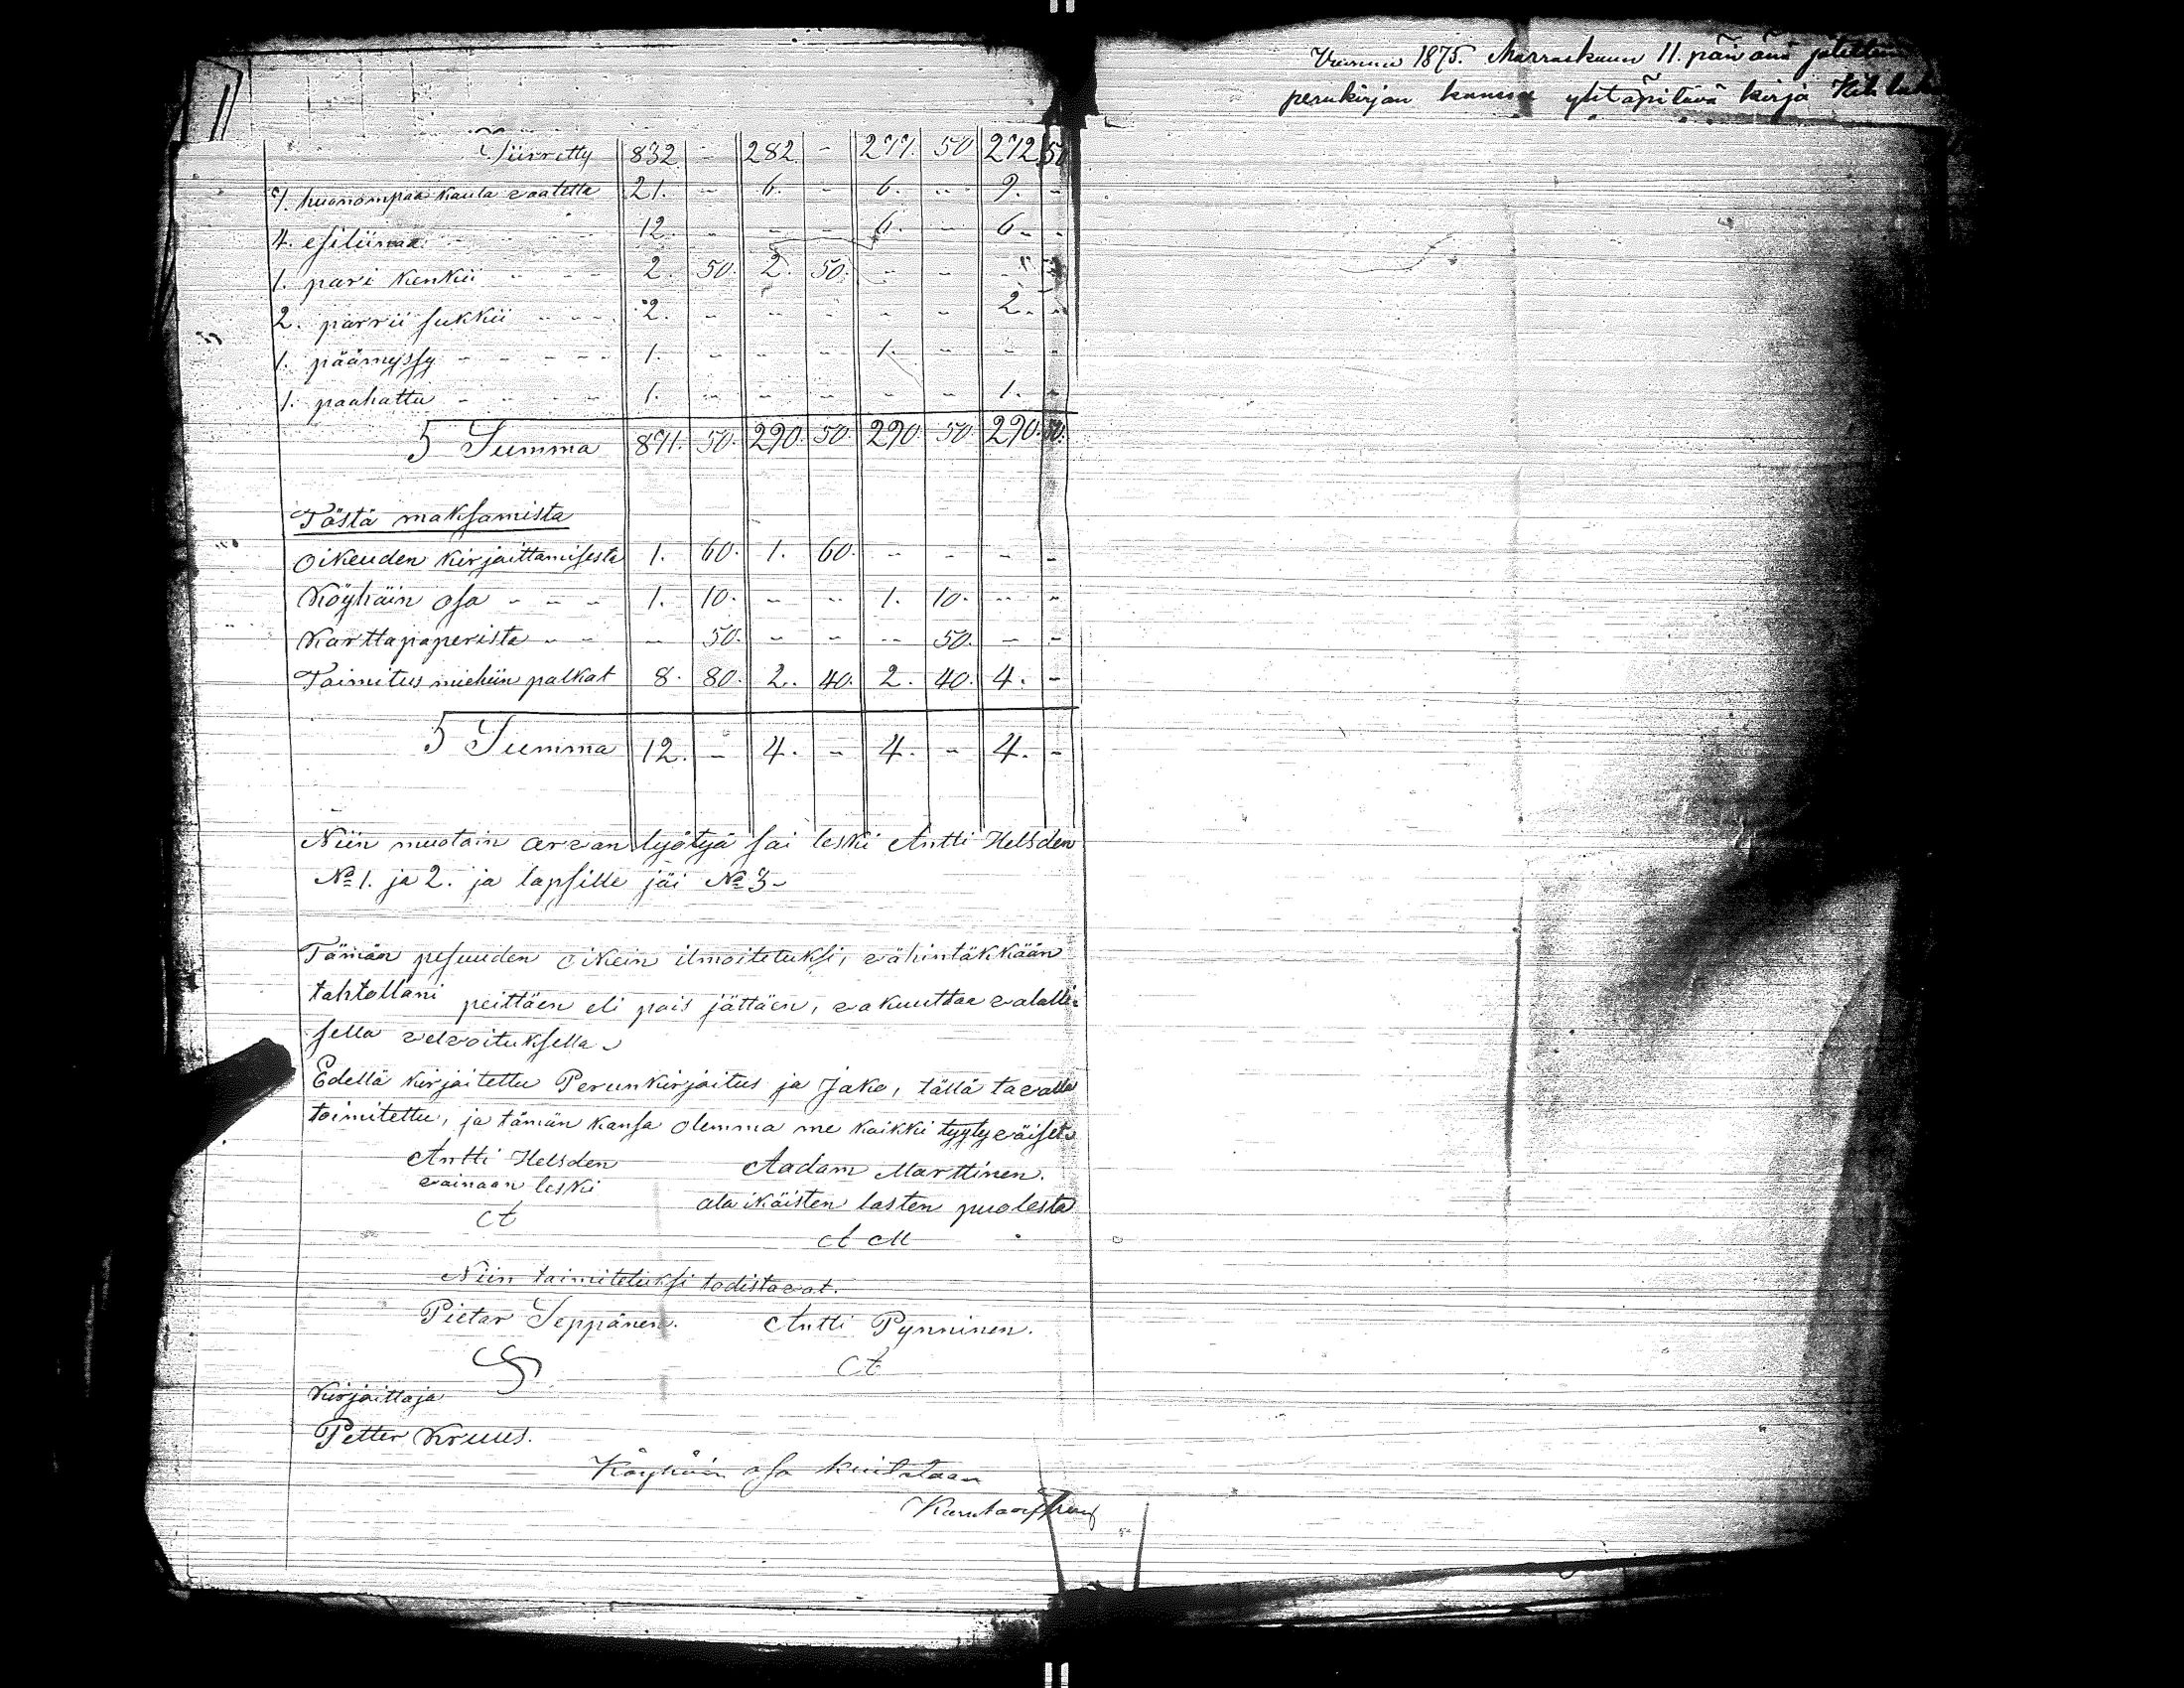 Siirretty 832. - 282. - 277. 50 272. 50
7. huonompaa kaula vaatetta 21. - 6. - 6. - 9. -
4. esiliinaa 12. - - - 6. - 6. -
1. pari kenkii 2. 50. 2. 50. - - - -
2. parrii sukkii 2. - - - - - 2. -
1. päämyssy 1. - - - 1. - - -
1. paahattu 1. - - - - - 1. -
Summa 871. 50. 290. 50 290. 50. 290. 50.
Tästä maksamista
Oikeuden kirjaittamisesta 1. 60. 1. 60. - - - -
Köyhäin osa - - - 1. 10. - - 1. 10. - -
Karttapaperista - - - 50. - - - 50. - -
Toimitus miehiin palkat 8. 80. 2. 40. 2. 40. 4. -
Summa 12. - 4. - 4. - 4. -
Niin muotoin arvan lyötyä sai leski Antti Helsden
No 1. ja 2. ja lapsille jäi No 3.
Tämän pesuuden oikein ilmoitetuksi, vähintäkkään
tahtollani peittäen eli pois jättäen, vakuuttaa valalli-
sella velvoituksella.
Edellä kirjaitettu Perunkirjoitus ja Jako, tällä tavalla
toimitettu, ja tämän kansa olemma me kaikki tyytyväiset.
Antti Helsden Aadam Marttinen.
vainaan leski alaikäisten lasten puolesta
A A M
Niin toimitetuksi todistavat.
Pietar Seppänen. Antti Pynninen.
A
Kirjaittaja
Petter Kruus.
Köyhäin osa kuitataan
Vuonna 1875. Marraskuun 11. päivänä
perukirjan kanssa yhtäpitävä kirja